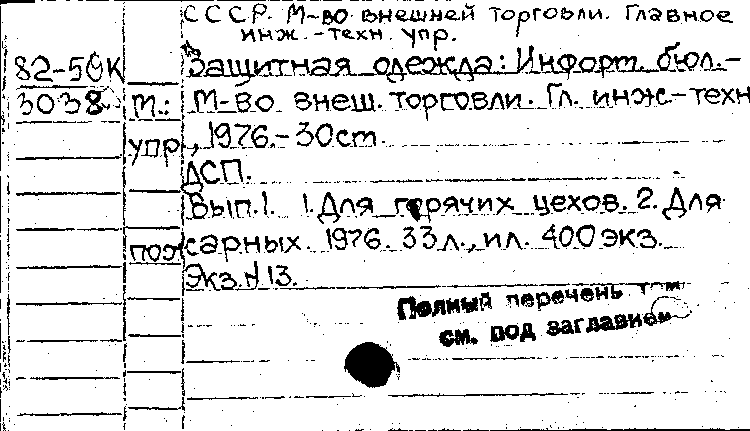 СССР. М-во внешней торговли. Главное
инж.-техн. упр.
82-50К Защитная одежда: Информ. бюл.-
3038 М.: М-во внеш. торговли. Гл. инж-техн
упр., 1976.-30см.
ДСП.
Вып.1. 1. Для горячих цехов. 2. Для
пожарных. 1976. 33 л., ил. 400 экз.
Экз. N 13.
Полный перечень
см. под заглавием